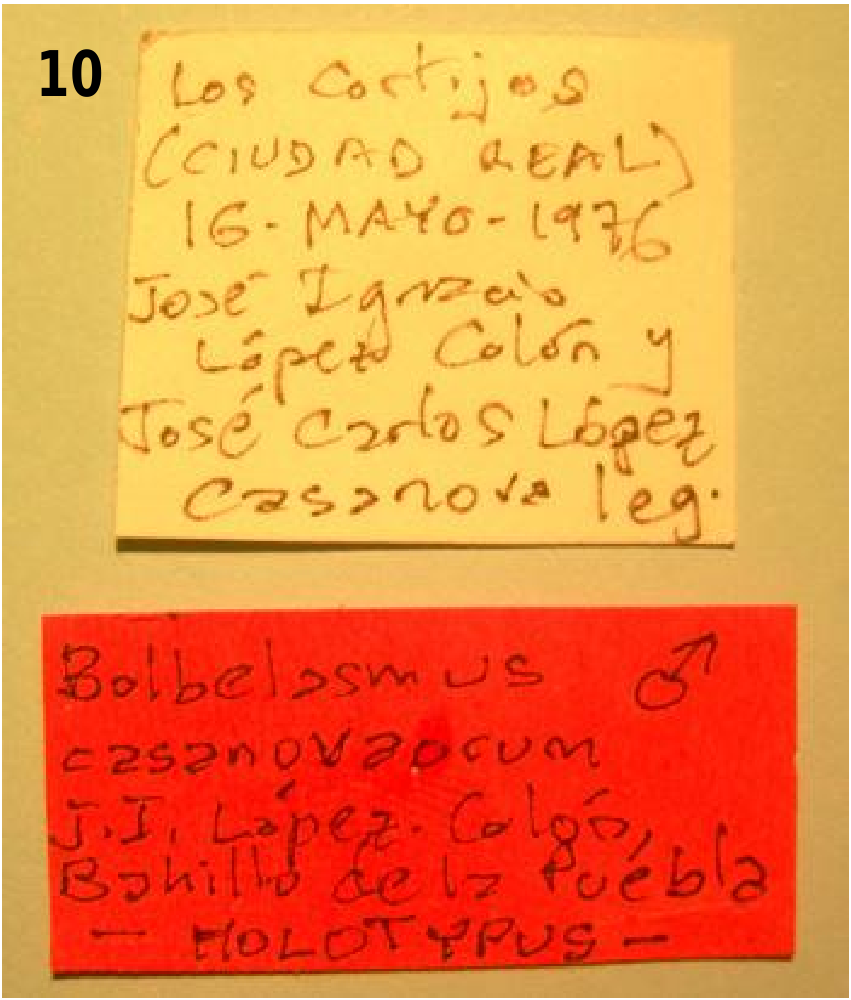 10
Los Cortijos
(CIUDAD REAL)
16-MAYO-1976
José Ignacio
López Colón y
José Carlos López
Casanova leg.
Bolbelasmus ♂
casanovaorum
J.I. López-Colón,
Bahillo de la Puebla
- HOLOTYPUS -